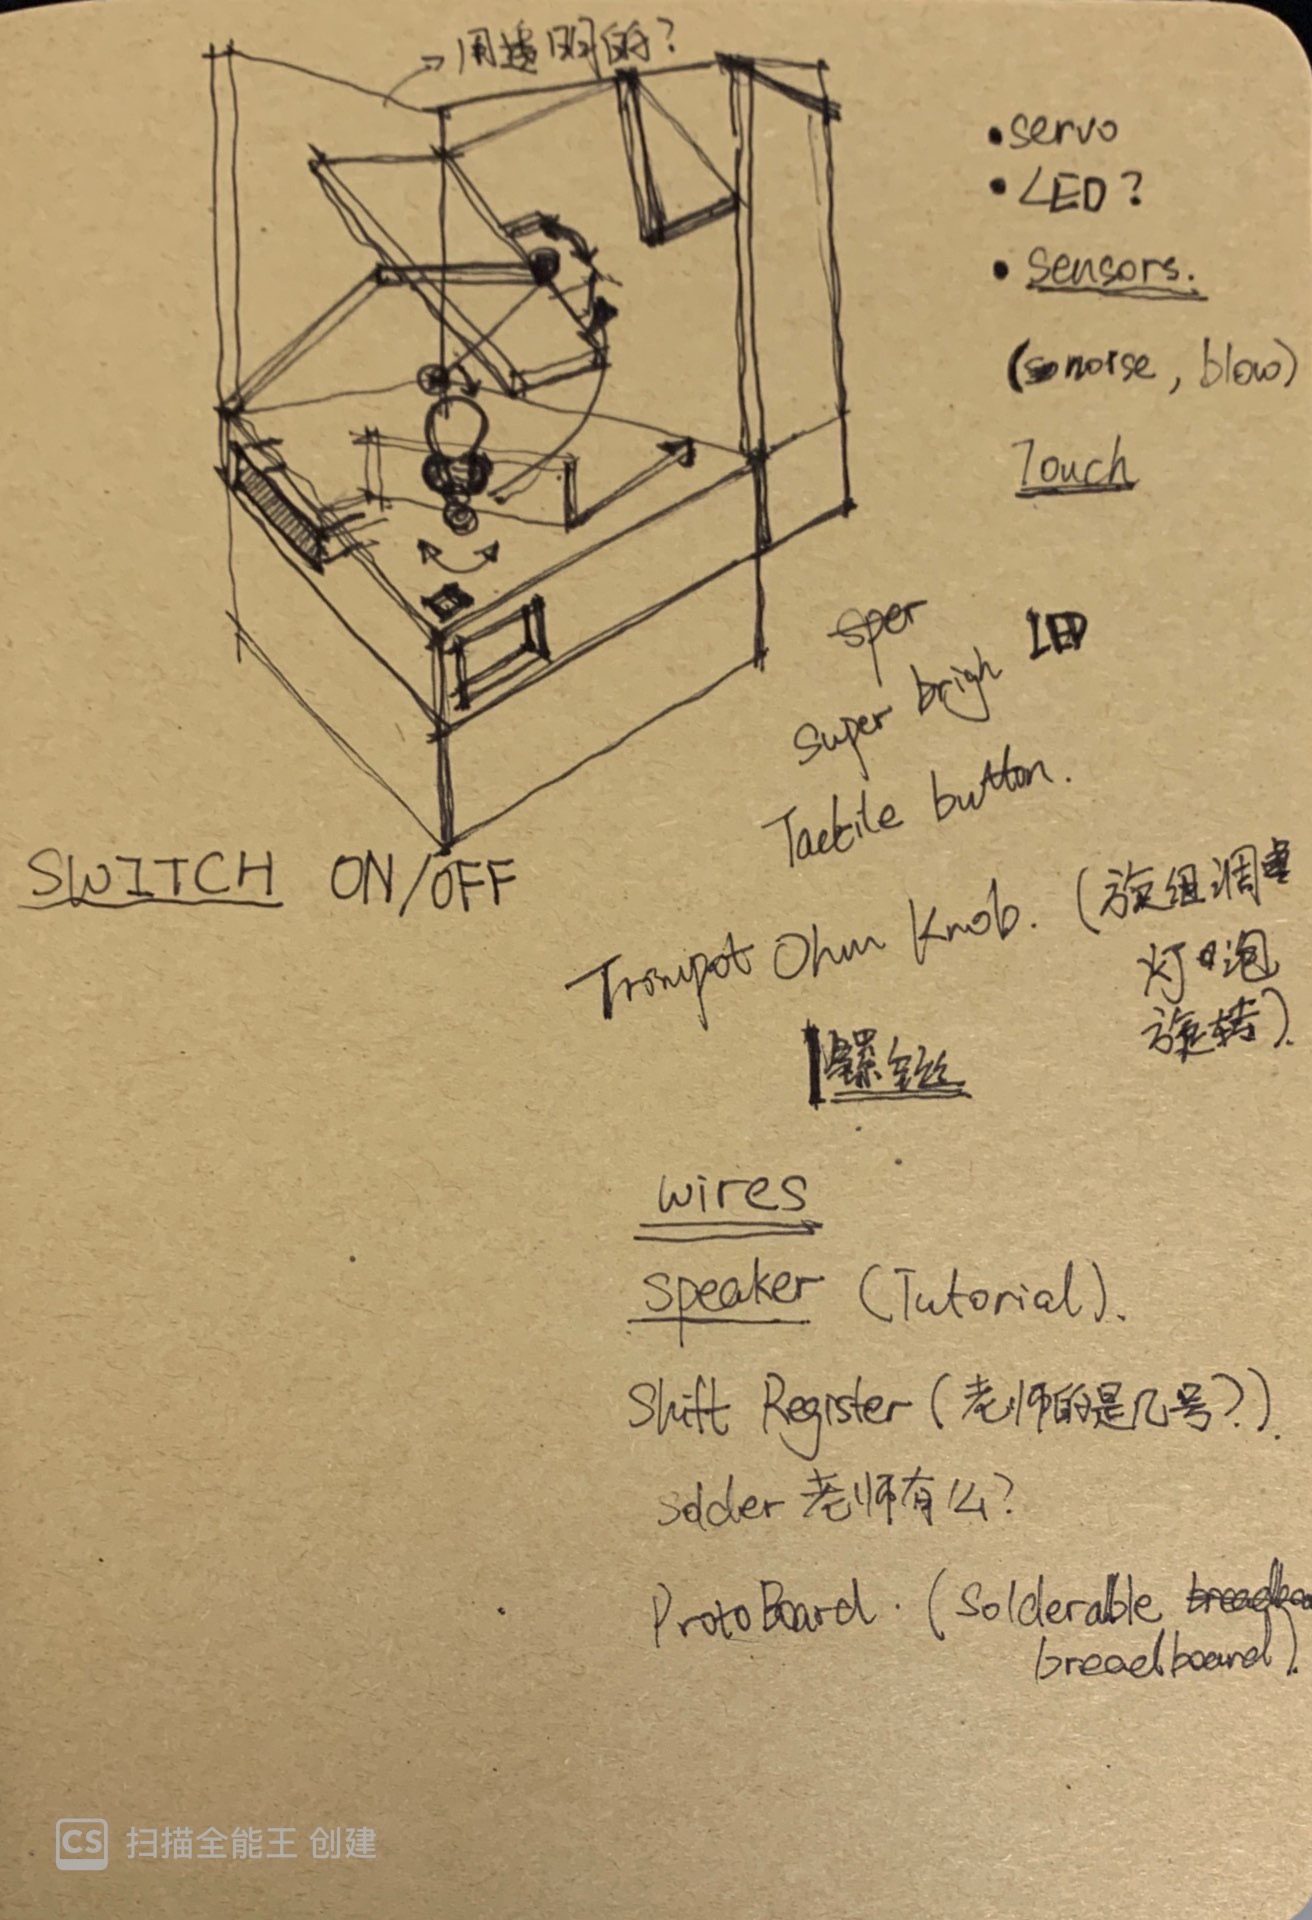 用透明的？
• servo
• LED ?
• sensors.
(noise, blow)
Touch
sper
super brigh LED
Tacktile button.
SWITCH ON/OFF
Trompot Ohm Knob. (旋钮调
灯泡
旋转).
螺丝
wires
speaker (Tutorial).
Shift Register (老师的是几号?).
solder 老师有么?
ProtoBoard. (Solderable breadboa
breadboard).
CS 扫描全能王 创建